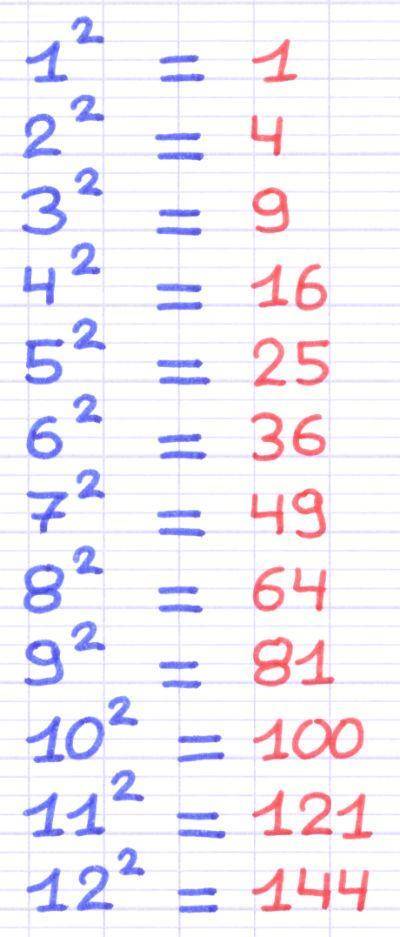 1² = 1
2² = 4
3² = 9
4² = 16
5² = 25
6² = 36
7² = 49
8² = 64
9² = 81
10² = 100
11² = 121
12² = 144